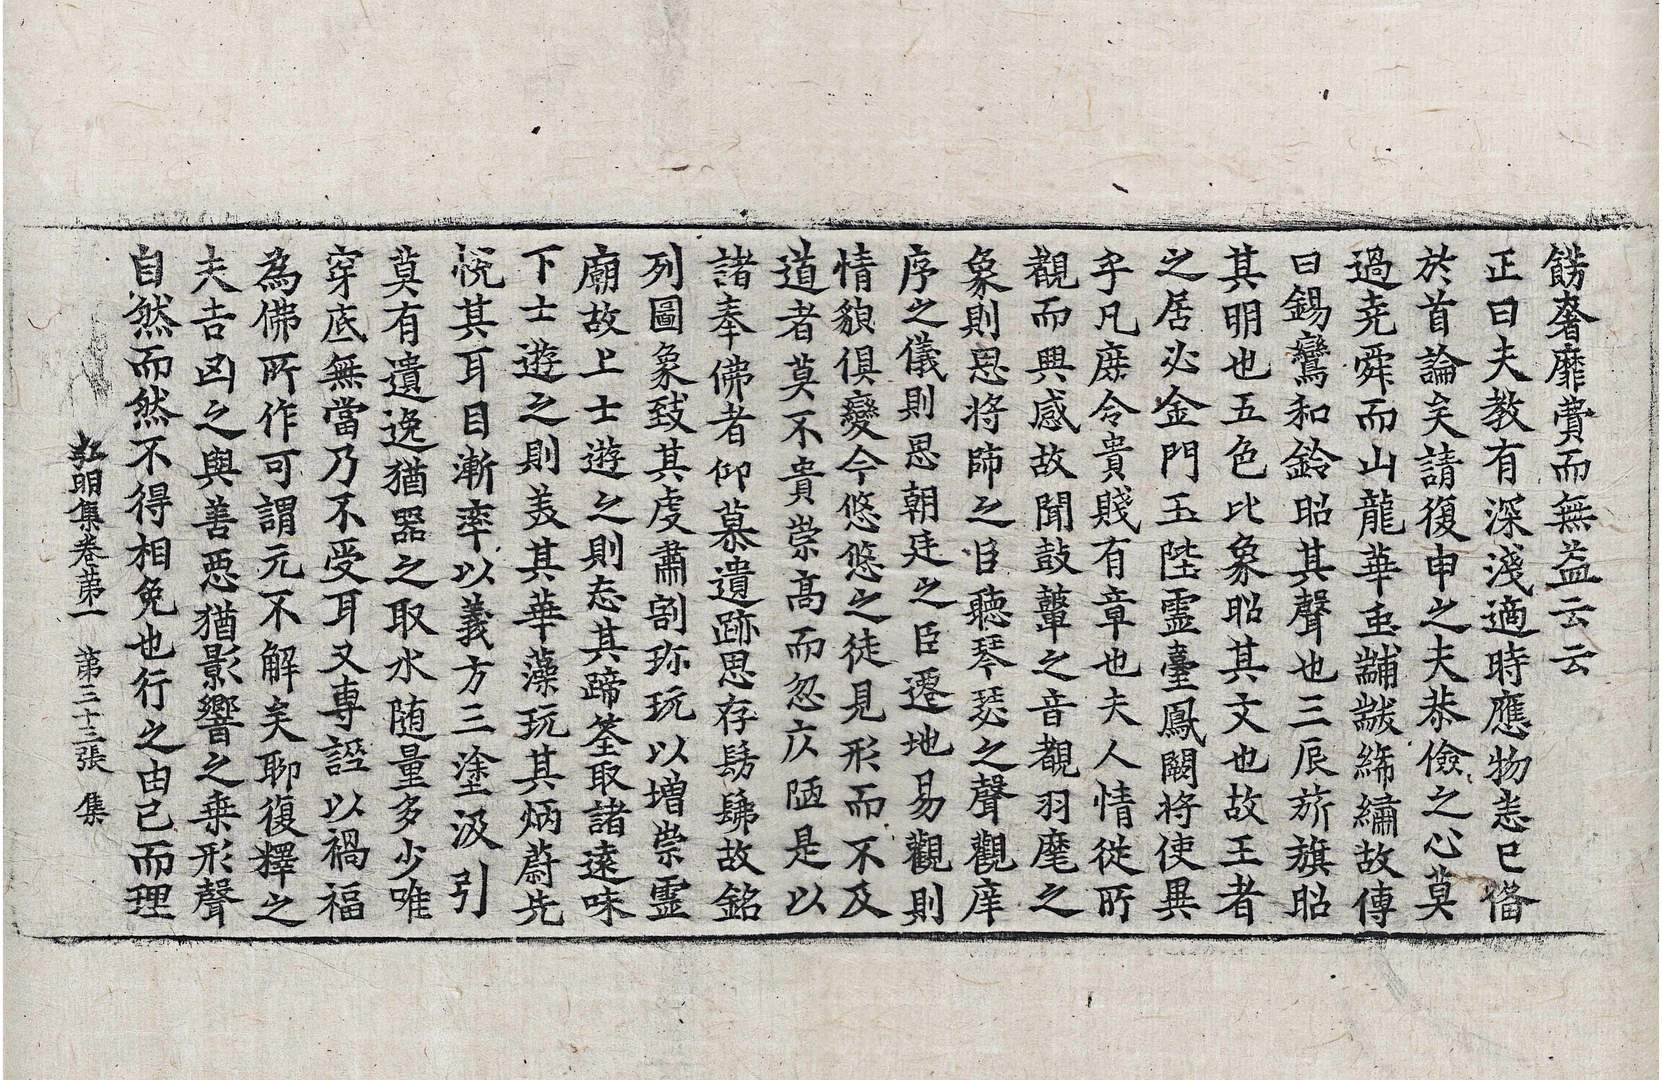 餝奢靡費而無益云云
正曰夫教有深淺適時應物悉已俻
於首論矣請復申之夫恭儉之心莫
過堯舜而山龍華虫黼黻絺繡故傳
曰錫鸞和鈴昭其聲也三辰旂旗昭
其明也五色比象昭其文也故王者
之居必金門玉陛靈臺鳳闕將使異
乎凡庶令貴賤有章也夫人情從所
覩而興感故聞鼓鼙之音覩羽麾之
象則思將帥之臣聽琴瑟之聲觀庠
序之儀則思朝廷之臣遷地易觀則
情貌俱變今悠悠之徒見形而不及
道者莫不貴崇高而忽仄陋是以
諸奉佛者仰慕遺跡思存髣髴故銘
列圖象致其虔肅割珎玩以增崇靈
廟故上士遊之則忘其蹄筌取諸遠味
下士遊之則美其華藻玩其炳蔚先
悅其耳目漸率以義方三塗汲引
莫有遺逸猶器之取水随量多少唯
穿底無當乃不受耳又專誣以禍福
為佛所作可謂元不解矣聊復釋之
夫吉凶之與善惡猶影響之乗形聲
自然而然不得相免也行之由己而理
弘明集卷第一 第三十三張 集